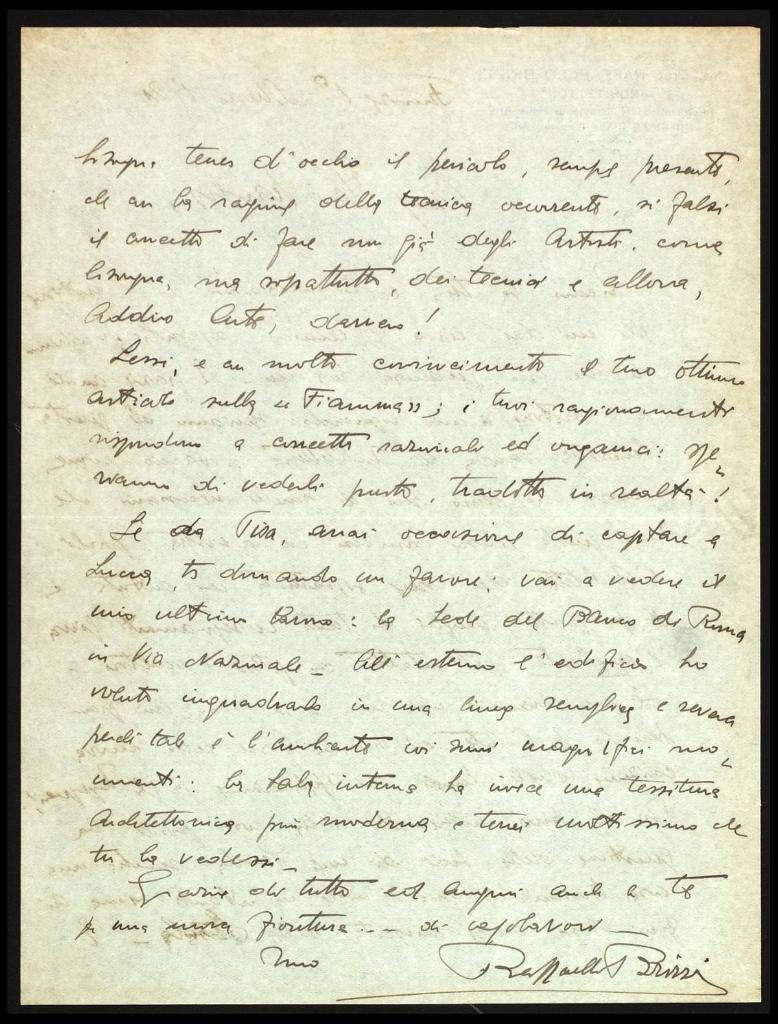 bisogna tener d'occhio il pericolo, sempre presente,
che con la ragione della tecnica occorrente, si falsi
il concetto di fare non già degli Artisti, come
bisogna, ma soprattutto, dei tecnici e allora,
Addio Arte, davvero!
Lessi, e con molto convincimento il tuo ottimo
articolo sulla "Fiamma"; i tuoi ragionamenti
rispondono a concetti razionali ed organici: spe=
riamo di vederli presto, tradotti in realtà!
Se da Pisa, avrai occasione di capitare a
Lucca, ti domando un favore: vai a vedere il
mio ultimo lavoro: la Sede del Banco di Roma
in Via Nazionale_ All'esterno l'edificio ho
voluto inquadrarlo in una linea semplice e severa
perché tale è l'ambiente coi suoi magnifici mo=
numenti: la Sala interna ha invece una tessitura
Architettonica più moderna e terrei moltissimo che
tu la vedessi_
Grazie di tutto ed auguri anche a te
per una nuova fioritura... di capolavori_
Tuo Raffaello Brizzi